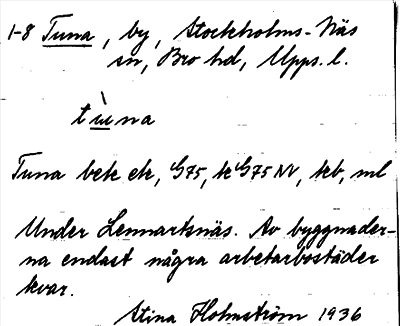 1-8 Tuna, by, Stockholms-Näs
sn, Bro hd, Upps. l.
tùuna
Tuna bek ek, G75, k G75 NV, kb, ml
Under Lennartsnäs. Av byggnader-
na endast några arbetarbostäder
kvar.
Stina Holmström 1936